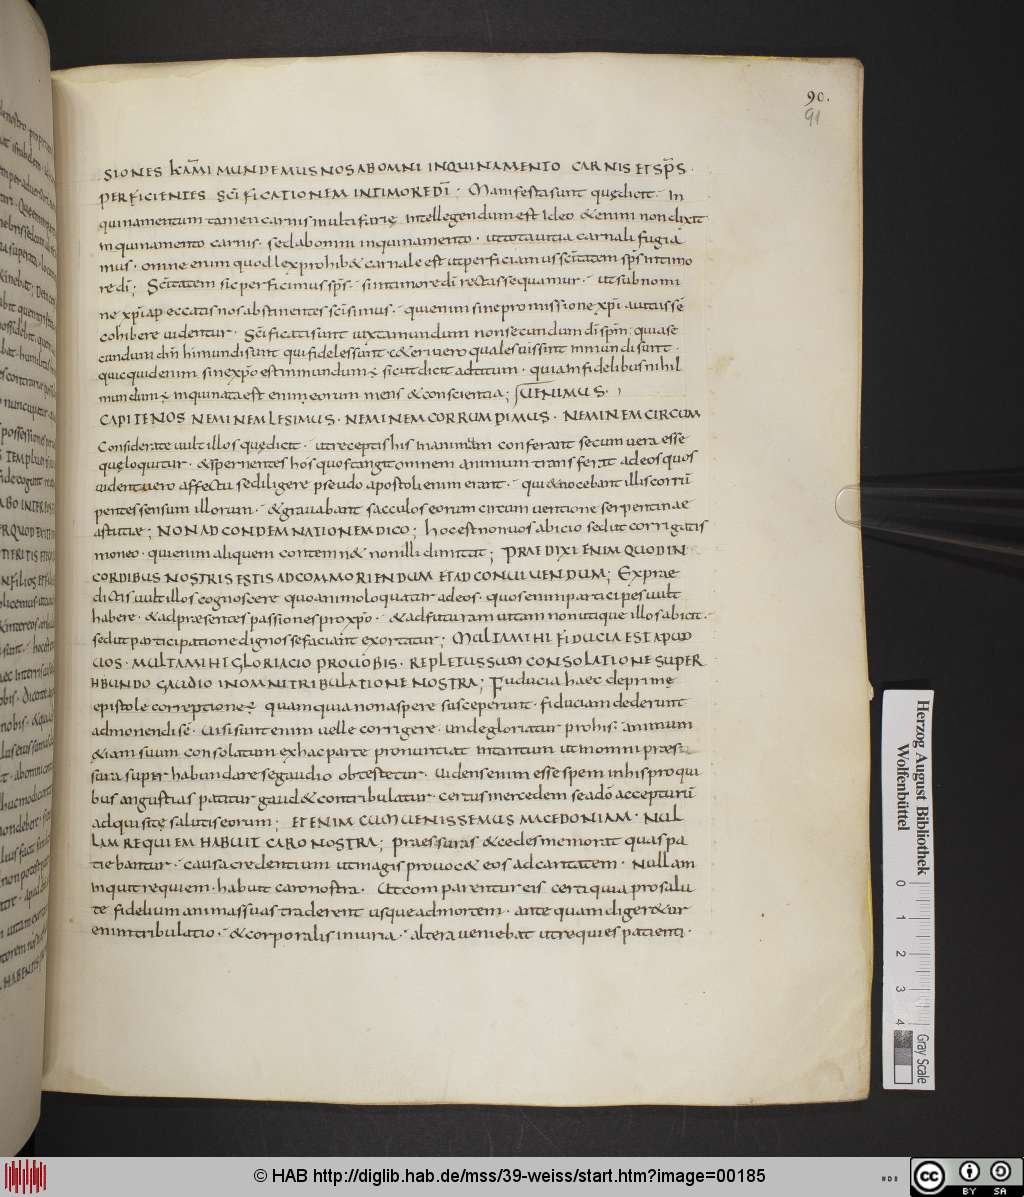 90.
91
SIONES kAM̄I MUNDEMUS NOS AB OMNI INQUINAMENTO CARNIS ET SP̄S.
PERFICIENTES SC̄IFICATIONEM IN TIMORE DĪ. Manifesta sunt quę dicit. In
quinamentum tamen carnis multifarię intellegendum est Ideo & enim non dixit
inquinamento carnis. sed ab omni inquinamento. ut tota vitia carnali fugia
mus. omne enim quod lex prohib& carnale est ut perficiamus sc̄itatem sp̄s in timo
re dī; Sc̄itatem sic perficimus sp̄s. si in timore dī recta sequamur. ut sub nomi
ne xp̄i a peccatis nos abstinentes sc̄i simus. qui enim sine promissione xp̄i a vitiis sē
cohibere videntur. Sc̄ificati sunt iuxta mundum non secundum dī sp̄m. quia se
cundum dn̄m hi mundi sunt qui fideles sunt. c&eri vero quales vis sint inmundi sunt.
quicquid enim sine xp̄o est inmundum ę sicut dicit ad titum. quia infidelibus nihil
mundum ę inquinata est enim eorum mens & conscientia; VENIMUS.
CAPITE NOS NEMINEM LESIMUS. NEMINEM CORRUPIMUS. NEMINEM CIRCUM
Considerate vult illos quę dicit. ut receptis his in animam conferant secum vera esse
quę loquitur. & spernentes hos quos tangit omnem animum transferat ad eos quos
videntur vero affectu se diligere pseudo apostoli enim erant. qui & nocebant illis corrū
pentes sensum illorum. & gravabant sacculos eorum circumventione serpentinae
astutiae; NON AD CONDEMNATIONEM DICO; hoc est non vos abicio sed ut corrigatis
moneo. qui enim aliquem contemn& non illi dimittit; PRAEDIXI ENIM QUOD IN
CORDIBUS NOSTRIS ESTIS AD COMMORIENDUM ET AD CONVIVENDUM; Ex prae
dictis vult illos cognoscere quo animo loquatur ad eos. quos enim participes vult
habere. & ad praesentes passiones pro xp̄o. & ad futuram vitam non utique illos abicit.
sed ut participatione dignos se faciant exortatur; MULTA MIHI FIDUCIA EST APUD
VOS. MULTA MIHI GLORIACIO PRO VOBIS. REPLETUS SUM CONSOLATIONE SUPER
HBUNDO GAUDIO IN OMNI TRIBULATIONE NOSTRA; Fiducia haec de primę
epistole correptione ę quam quia non aspere susceperunt. fiduciam dederunt
admonendi sē. visi sunt enim velle corrigere. unde gloriatur pro his. animum
&iam suum consolatum ex hac parte pronunciat in tantum ut in omni praes
sura superhabundare se gaudio obtestetur. videns enim esse spem in his pro qui
bus angustias patitur gaud& contribulatur. certus mercedem se a dō accepturū
adquisitę salutis eorum; ETENIM CUM VENISSEMUS MACEDONIAM. NUL
LAM REQUIEM HABUIT CARO NOSTRA; praessuras & cedes memorat quas pa
tiebantur. causa credentium ut magis provoc& eos ad caritatem. Nullam
inquit requiem. habuit caro nostra. Ut comparentur eis certi quia pro salu
te fidelium animas suas traderent usque ad mortem. ante quam diger&ur
enim tribulatio. & corporalis iniuria. altera veniebat ut requies patienti.
Herzog August Bibliothek
Wolfenbüttel
0 1 2 3 4
Gray Scale
© HAB http://diglib.hab.de/mss/39-weiss/start.htm?image=00185
cc BY SA